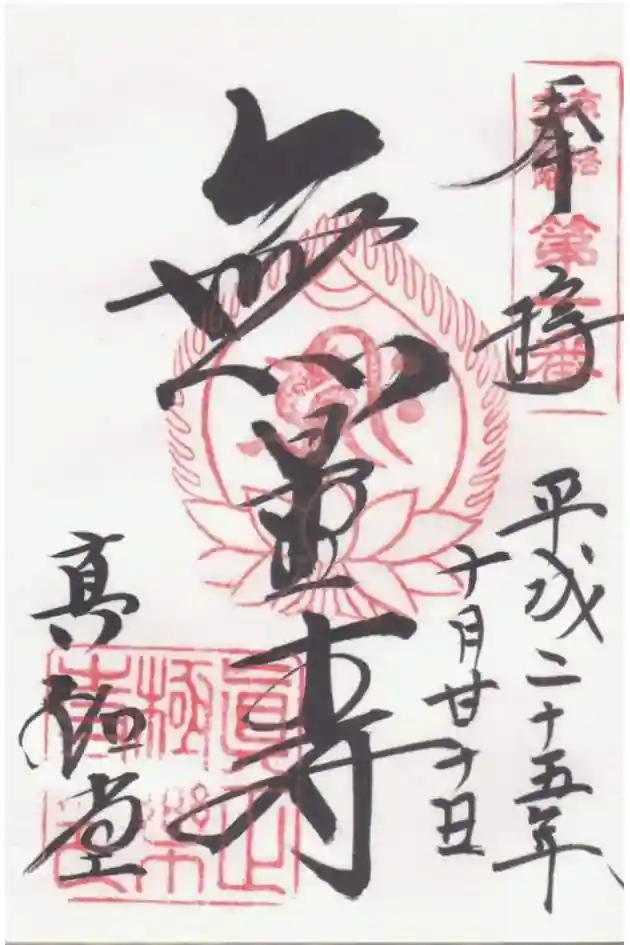 奉拝
第一番
平成二十五年
十月廿七日
無量寿
真如堂
眞正
極楽